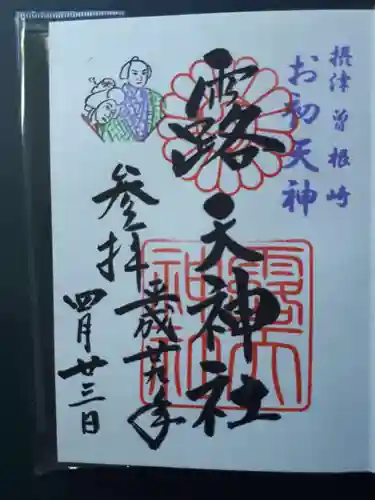 摂津 曽根崎
お初天神
露天神社
参拝
平成廿八年
四月廿三日
露天神社